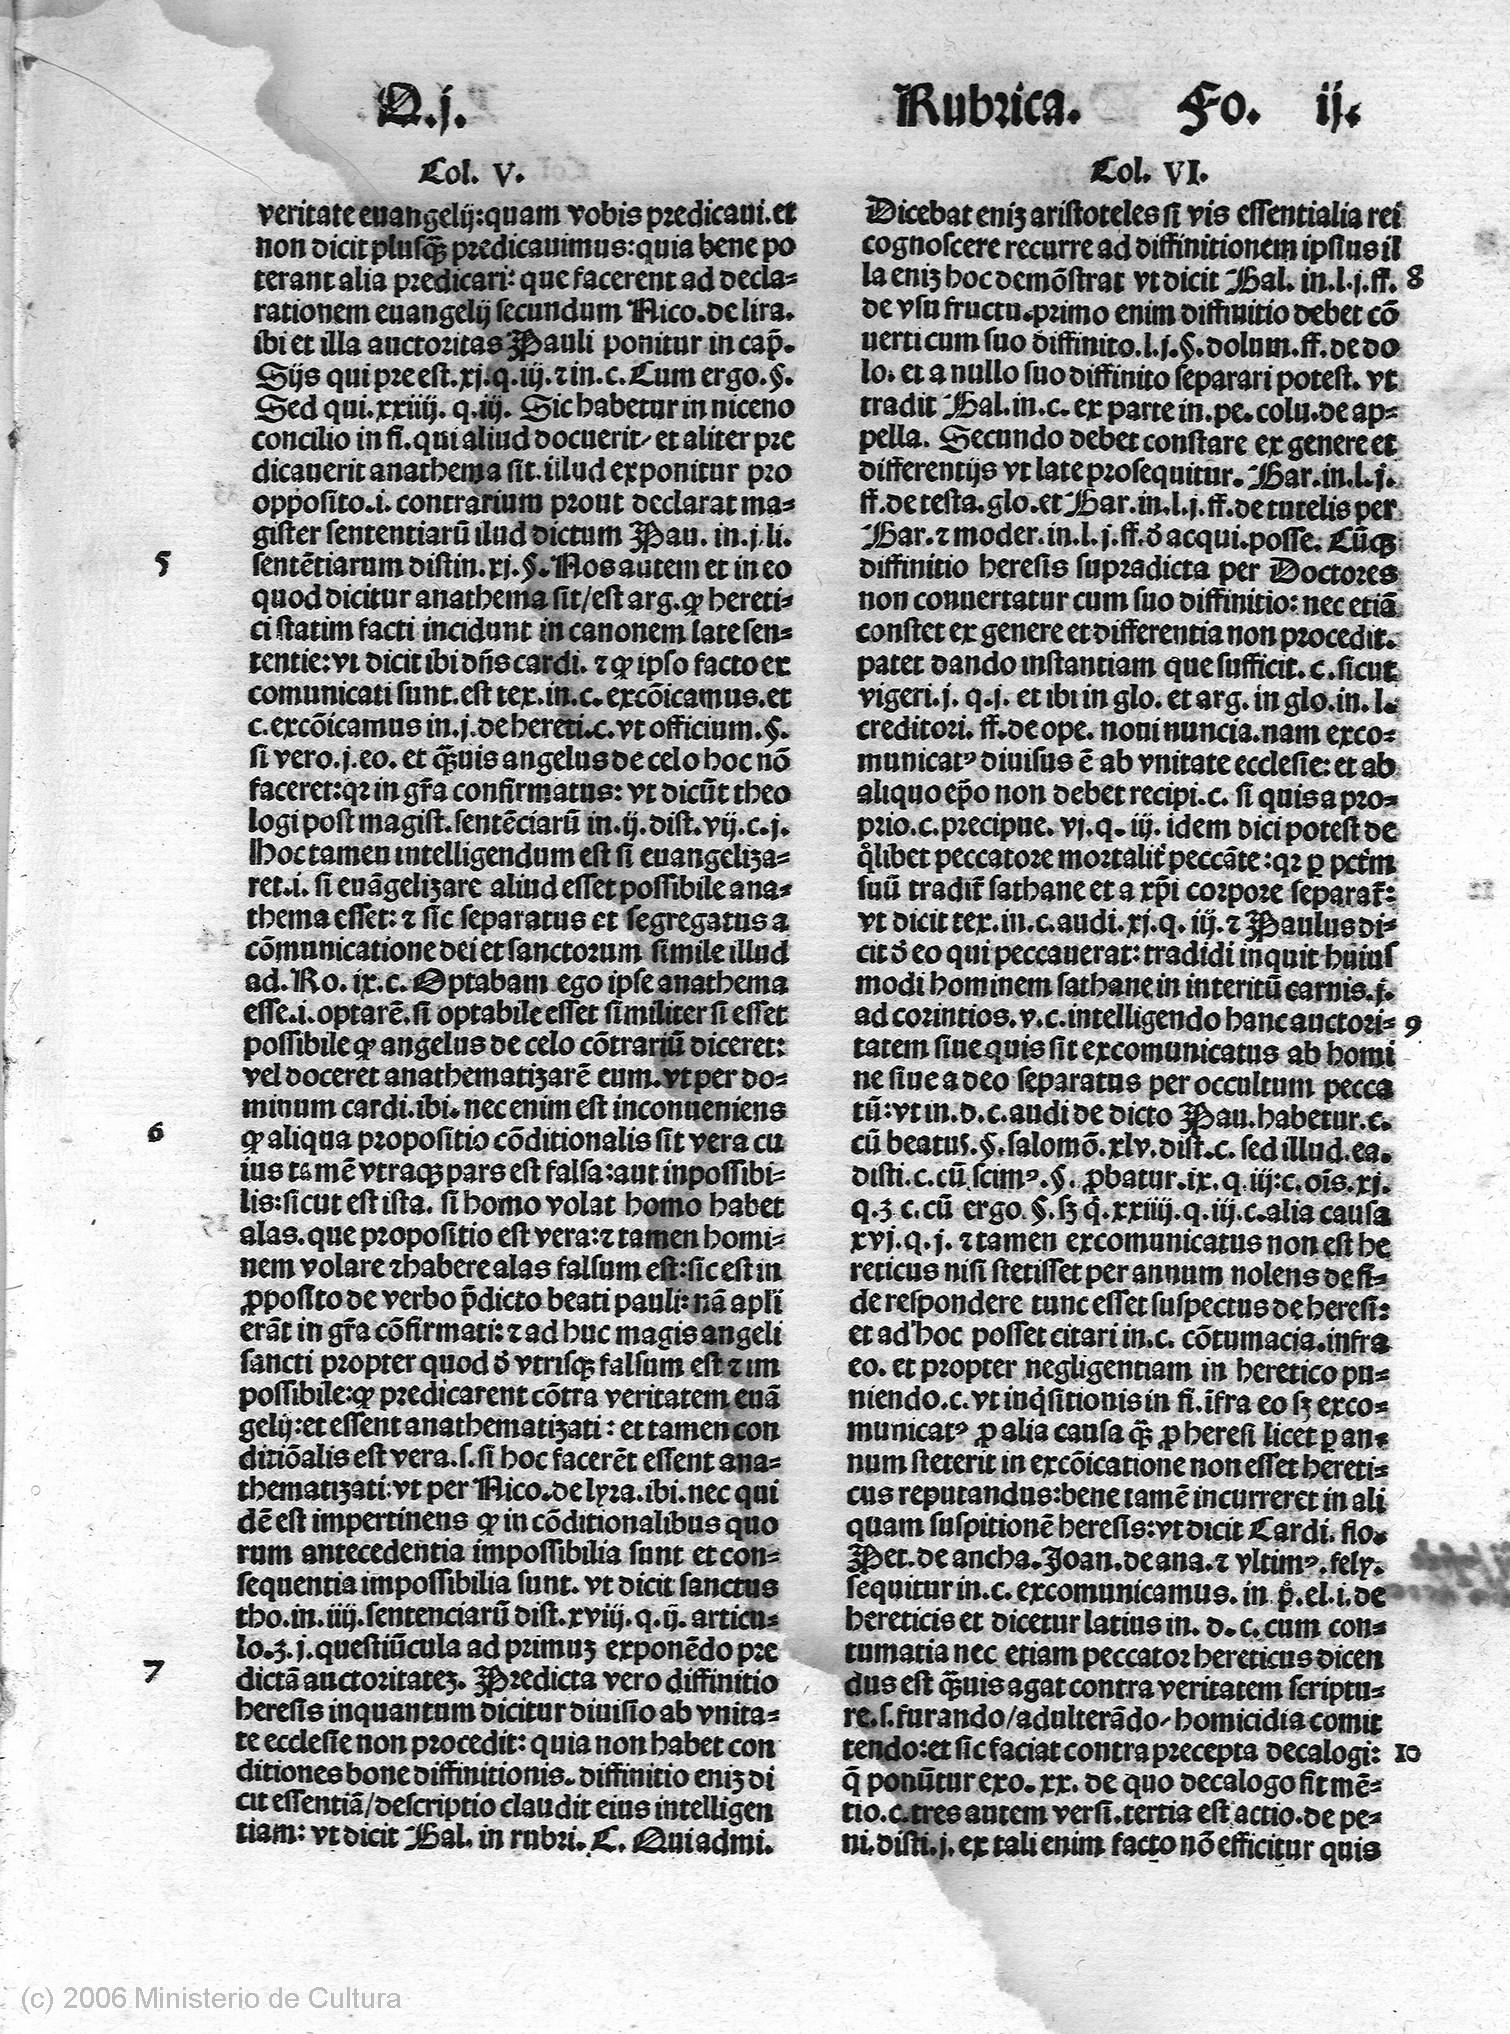 Q.j.
Rubrica. Fo. ij.
Col. V.
veritate euangelij:quam vobis predicaui.et
non dicit plusq̃ predicauimus:quia bene po
terant alia predicari: que facerent ad decla-
rationem euangelij secundum Nico.de lira.
ibi et illa auctoritas Pauli ponitur in cap̃.
Sijs qui pre est.xj.q.iij.⁊ in.c.Cum ergo.§.
Sed qui.xxiiij. q.iij. Sic habetur in niceno
concilio in fi.qui aliud docuerit/ et aliter pre
dicauerit anathema sit.illud exponitur pro
opposito.i. contrarium prout declarat ma-
gister sententiarũ ilud dictum Pau. in.j.li.
5
sentẽtiarum distin.xj.§.Nos autem et in eo
quod dicitur anathema sit/est arg.ꝙ hereti-
ci statim facti incidunt in canonem late sen-
tentie:vt dicit ibi dñs cardi. ⁊ ꝙ ipso facto ex
comunicati sunt.est tex.in.c.excõicamus.et
c.excõicamus in.j.de hereti.c.vt officium.§.
si vero.j.eo. et q̃uis angelus de celo hoc nõ
faceret:qꝛ in gr̃a confirmatus: vt dicũt theo
logi post magist.sentẽciarũ in.ij.dist.vij.c.j.
Hoc tamen intelligendum est si euangeliza-
ret.i. si euãgelizare aliud esset possibile ana-
thema esset: ⁊ sic separatus et segregatus a
cõmunicatione dei et sanctorum simile illud
ad.Ro.ix.c.Optabam ego ipse anathema
esse.i.optarẽ.si optabile esset similiter si esset
possibile ꝙ angelus de celo cõtrariũ diceret:
vel doceret anathematizarẽ eum.vt per do-
minum cardi.ibi. nec enim est inconueniens
6
ꝙ aliqua propositio cõditionalis sit vera cu
ius tamẽ vtraqꝫ pars est falsa:aut inpossibi-
lis:sicut est ista. si homo volat homo habet
alas.que propositio est vera:⁊ tamen homi-
nem volare ⁊habere alas falsum est:sic est in
ꝓposito de verbo p̃dicto beati pauli: nã apl̃i
erãt in gr̃a cõfirmati: ⁊ ad huc magis angeli
sancti propter quod đ vtrisqꝫ falsum est ⁊ im
possibile:ꝙ predicarent cõtra veritatem euã
gelij:et essent anathematizati: et tamen con
ditiõalis est vera.s.si hoc facerẽt essent ana-
thematizati:vt per Nico.de lyra.ibi.nec qui
dẽ est impertinens ꝙ in cõditionalibus quo
rum antecedentia impossibilia sunt et con-
sequentia impossibilia sunt. vt dicit sanctus
tho.in.iiij.sentenciarũ dist.xviij.q.ij. articu-
lo.ʒ.j.questiũcula ad primuʒ exponẽdo pre
7
dictã auctoritateʒ. Predicta vero diffinitio
heresis inquantum dicitur diuisio ab vnita-
te ecclesie non procedit: quia non habet con
ditiones bone diffinitionis.diffinitio eniʒ di
cit essentiã/descriptio claudit eius intelligen
tiam: vt dicit Bal. in rubri. C. Qui admi.
Col. VI.
Dicebat eniʒ aristoteles si vis essentialia rei
cognoscere recurre ad diffinitionem ipsius il
la eniʒ hoc demõstrat vt dicit Bal. in.l.j.ff. 8
de vsu fructu.primo enim diffinitio debet cõ
uerti cum suo diffinito.l.j.§.dolum.ff.de do
lo. et a nullo suo diffinito separari potest. vt
tradit Bal.in.c. ex parte in.pe.colu.de ap-
pella. Secundo debet constare ex genere et
differentijs vt late prosequitur. Bar.in.l.j.
ff.de testa.glo.et Bar.in.l.j.ff.de tutelis per
Bar.⁊ moder.in.l.j.ff.đ acqui.posse. Cũqꝫ
diffinitio heresis supradicta per Doctores
non conuertatur cum suo diffinitio: nec etiã
constet ex genere et differentia non procedit.
patet dando instantiam que sufficit.c.sicut
vigeri.j. q.j. et ibi in glo. et arg. in glo.in. l.
creditori. ff.de ope. noui nuncia.nam exco-
municatꝰ diuisus ẽ ab vnitate ecclesie: et ab
aliquo ep̃o non debet recipi.c. si quis a pro-
prio.c.precipue. vj.q. iij. idem dici potest de
q̊libet peccatore mortalit̃ peccãte:qꝛ ꝑ pct̃m
suũ tradit̃ sathane et a xp̃i corpore separat̃:
vt dicit tex.in.c.audi.xj.q. iij.⁊ Paulus di-
cit đ eo qui peccauerat: tradidi inquit huius
modi hominem sathane in interitũ carnis.j.
ad corintios.v.c.intelligendo hanc auctori- 9
tatem siue quis sit excomunicatus ab homi
ne siue a deo separatus per occultum pecca
tũ:vt in.d.c.audi de dicto Pau.habetur.c.
cũ beatus.§.salomõ.xlv.dist.c. sed illud.ea.
disti.c.cũ scimꝰ.§. ꝓbatur.ix.q.iij:c.oĩs.xj.
q.ʒ c.cũ ergo.§.sʒ q̇.xxiiij.q.iij.c.alia causa
xvj.q.j. ⁊ tamen excomunicatus non est he
reticus nisi stetisset per annum nolens de fi-
de respondere tunc esset suspectus de heresi:
et ad hoc posset citari in.c. cõtumacia.infra
eo. et propter negligentiam in heretico pu-
niendo.c.vt inq̇sitionis in fi.ĩfra eo sʒ exco-
municatꝰ ꝓ alia causa q̃ ꝓ heresi licet ꝑ an-
num steterit in excõicatione non esset hereti-
cus reputandus:bene tamẽ incurreret in ali
quam suspitionẽ heresis:vt dicit Cardi. flo.
Pet.de ancha.Joan.de ana.⁊ vltimꝰ.fely.
sequitur in.c.excomunicamus. in p̊.el.i.de
hereticis et dicetur latius in. d.c.cum con-
tumatia nec etiam peccator hereticus dicen
dus est q̃uis agat contra veritatem scriptu-
re.s.furando/adulterãdo/homicidia comit
tendo:et sic faciat contra precepta decalogi: 10
q̃ ponũtur exo. xx. de quo decalogo fit mẽ-
tio.c.tres autem versi.tertia est actio.de pe-
ni.disti.j.ex tali enim facto nõ efficitur quis
(c) 2006 Ministerio de Cultura